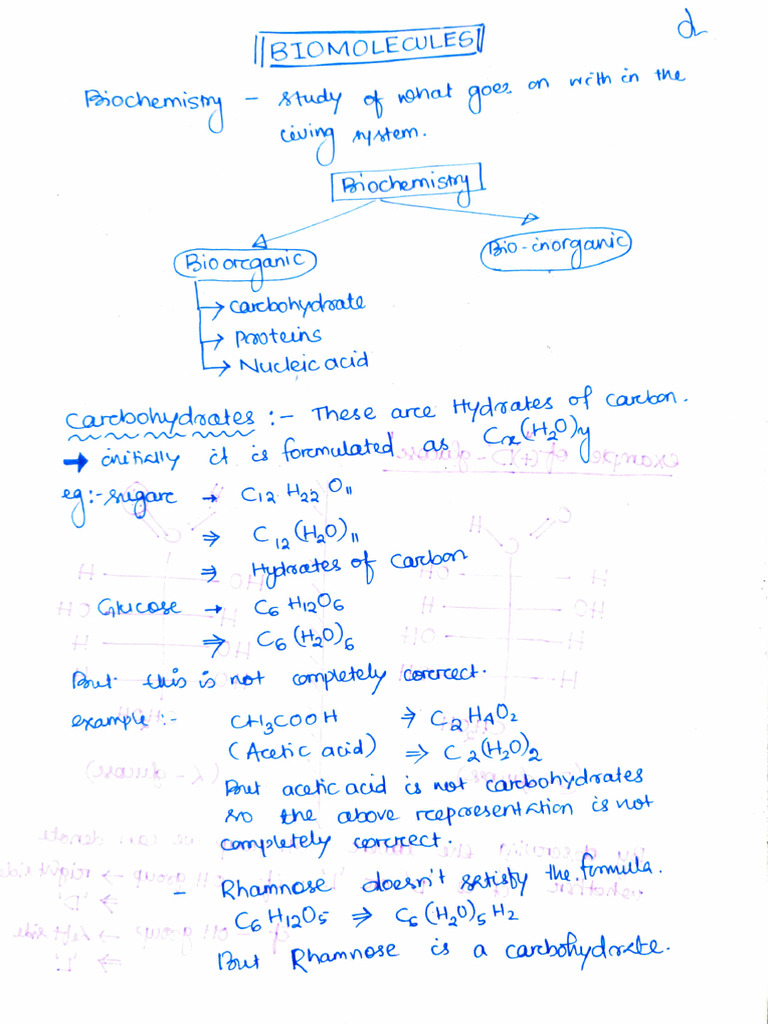 BIOMOLECULES
Biochemistry - study of what goes on with in the
living system.
Biochemistry
Bioorganic
Bio-inorganic
→ carbohydrate
→ proteins
→ Nucleic acid
Carbohydrates :- These are Hydrates of carbon.
→ initially it is formulated as Cx(H2O)y
eg:- sugar → C12 H22 O11
⇒ C12(H2O)11
⇒ Hydrates of Carbon
Glucose → C6 H12O6
⇒ C6(H2O)6
But this is not completely correct.
example :- CH3COOH ⇒ C2H4O2
(Acetic acid) ⇒ C2(H2O)2
But acetic acid is not carbohydrates
so the above representation is not
completely correct.
- Rhamnose doesn't satisfy the formula.
C6H12O5 ⇒ C6(H2O)5H2
But Rhamnose is a carbohydrate.